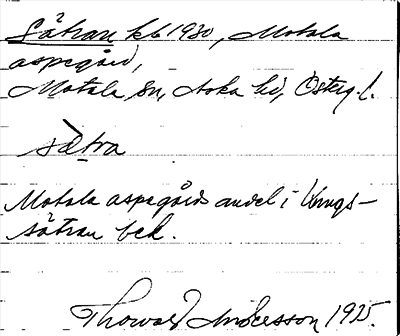 Sätran kb 1930, Motala
aspegård,
Motala sn, Aska hd, Österg. l.
sætra
Motala aspegårds andel i Kungs-
sätran bed.
Thorwald Andersson 1925